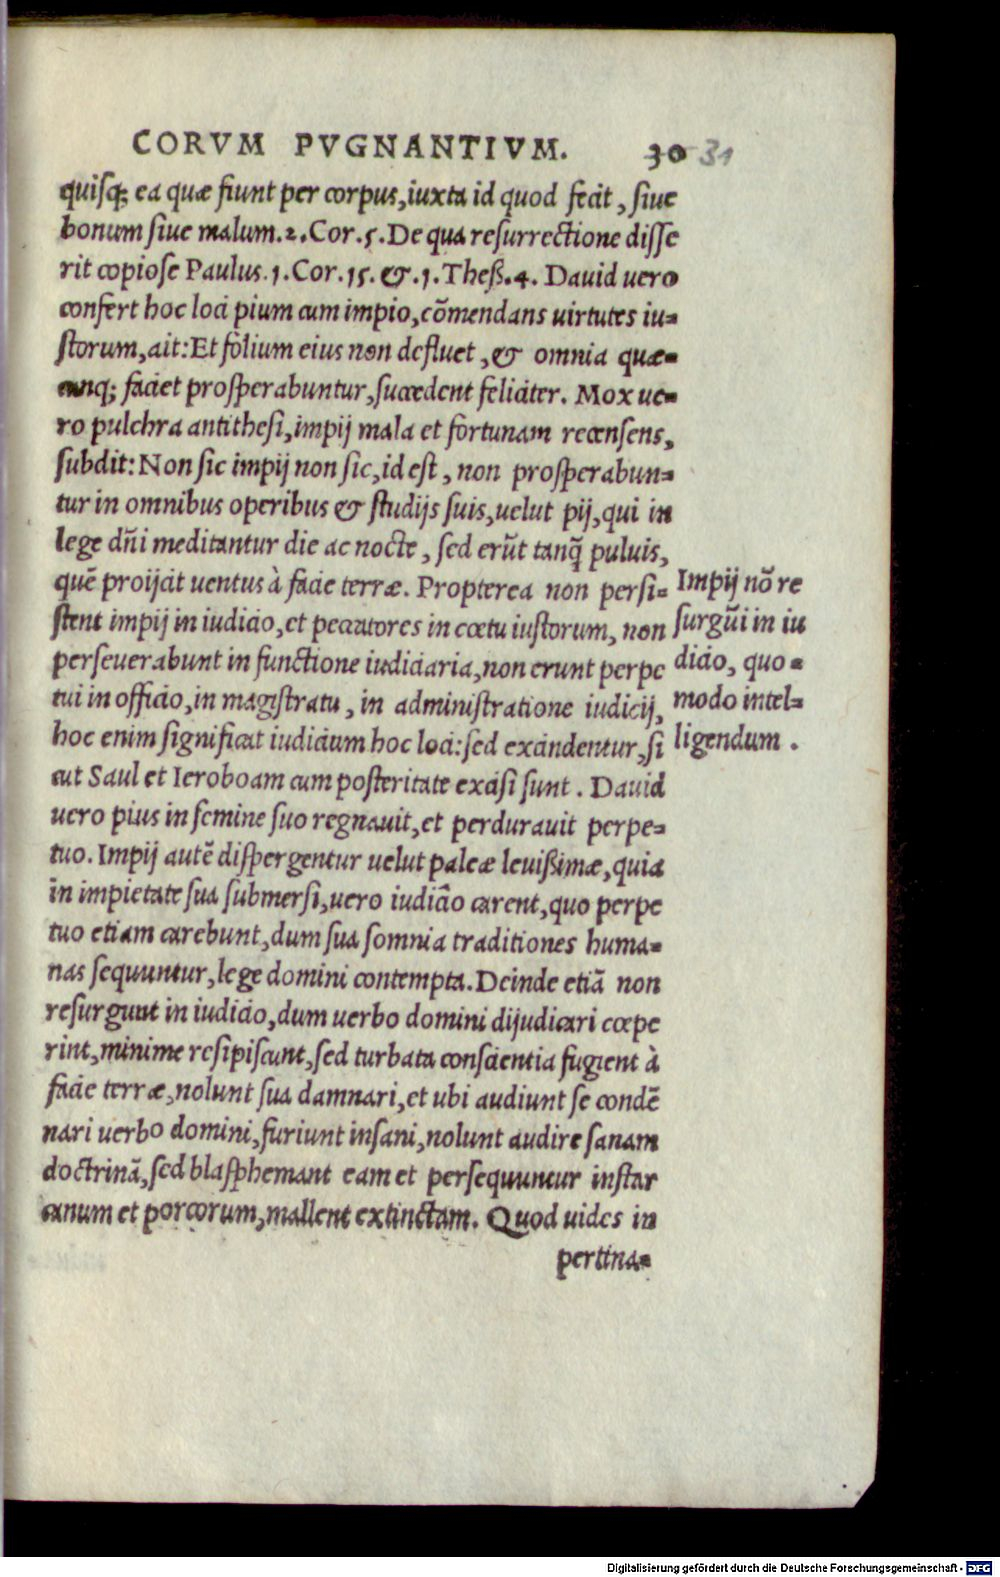 CORVM PVGNANTIVM. 30 31
quisq; ea quæ fiunt per corpus, iuxta id quod fecit, siue
bonum siue malum. 2. Cor. 5. De qua resurrectione disse
rit copiose Paulus. 1. Cor. 15. & . 1. Theß. 4. Dauid uero
confert hoc loci pium cum impio, cõmendans uirtutes iu=
storum, ait: Et folium eius non defluet, & omnia quæ=
cunq; faciet prosperabuntur, succedent feliciter. Mox ue=
ro pulchra antithesi, impij mala et fortunam recensens,
subdit: Non sic impij non sic, id est, non prosperabun=
tur in omnibus operibus & studijs suis, uelut pij, qui in
lege dñi meditantur die ac nocte, sed erũt tanq̃ puluis,
quẽ proijcit uentus à facie terræ. Propterea non persi=
stent impij in iudicio, et peccatores in cœtu iustorum, non
perseuerabunt in functione iudiciaria, non erunt perpe
tui in officio, in magistratu, in administratione iudicij,
hoc enim significat iudicium hoc loci: sed excindentur, si
cut Saul et Ieroboam cum posteritate excisi sunt. Dauid
uero pius in semine suo regnauit, et perdurauit perpe=
tuo. Impij autẽ dispergentur uelut paleæ leuißimæ, quia
in impietate sua submersi, uero iudicio carent, quo perpe
tuo etiam carebunt, dum sua somnia traditiones huma=
nas sequuntur, lege domini contempta. Deinde etiã non
resurgunt in iudicio, dum uerbo domini dijudicari cœpe
rint, minime resipiscunt, sed turbata conscientia fugient à
facie terræ, nolunt sua damnari, et ubi audiunt se condẽ
nari uerbo domini, furiunt insani, nolunt audire sanam
doctrinã, sed blasphemant eam et persequuntur instar
canum et porcorum, mallent extinctam. Quod uides in
pertina=
Impij nõ re
surgũt in iu
dicio, quo=
modo intel=
ligendum.
Digitalisierung gefördert durch die Deutsche Forschungsgemeinschaft - DFG